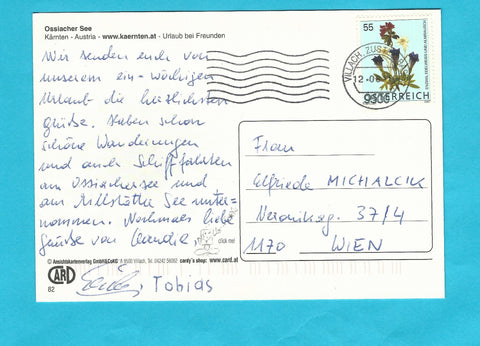 Ossiacher See
Kärnten - Austria - www.kaernten.at - Urlaub bei Freunden
Wir senden euch von
unserem ein-wöchigen
Urlaub die herzlichsten
Grüße. Haben schon
schöne Wanderungen
und auch Schifffahrten
am Ossiachersee und
am Millstätter See unter-
nommen. Nochmals liebe
Grüße von
Tobias
55
ÖSTERREICH
VILLACH
Frau
Elfriede MICHALCIK
37/4
1170 WIEN
click me!
© Ansichtskartenverlag GmbH&CoKG A-9500 Villach, Tel. 04242 56062 cardy's shop: www.card.at
CARD
82